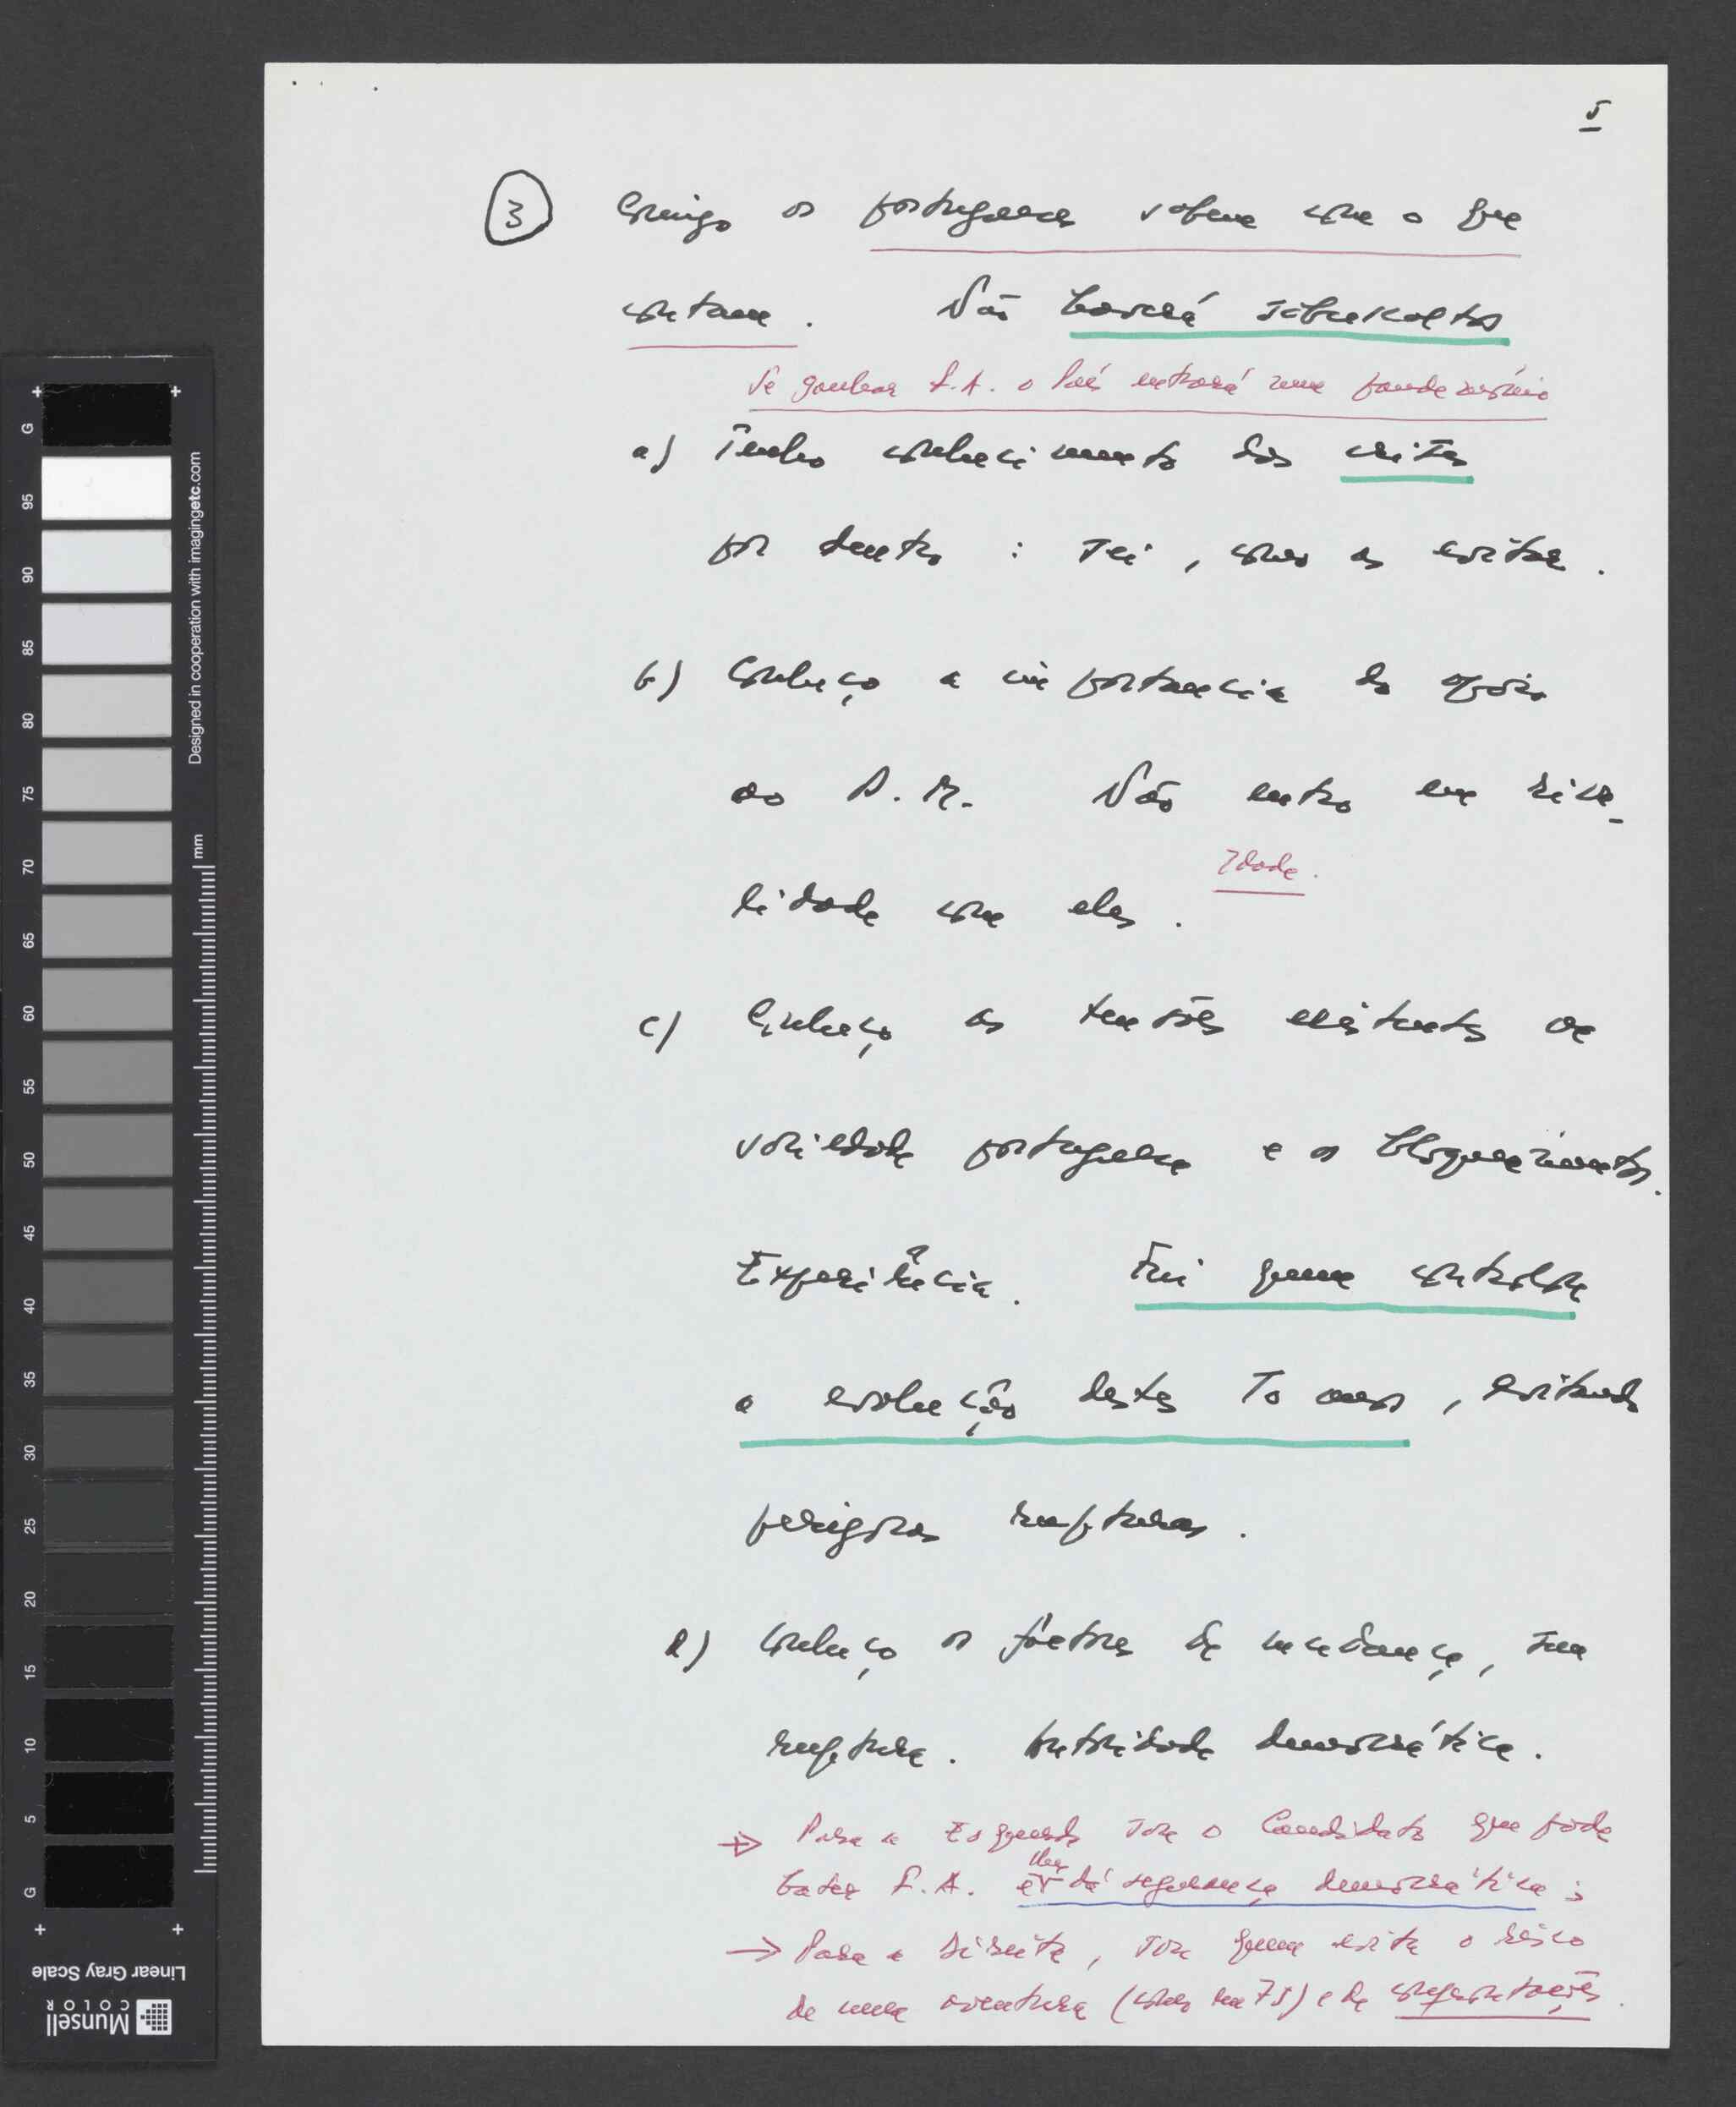 5
3 Comigo os portugueses sabem com o que
contam. Não haverá sobressaltos
Se ganhar F.A. o País entrará num pandemónio
a) Tenho conhecimento das crises
por dentro: sei, como as evitar.
b) Conheço a importancia do apoio
ao P.M. Não entro em riva-
Idade.
lidade com eles.
c) Conheço as tensões existentes na
sociedade portuguesa e os bloqueamentos.
Experiência. Fui quem controlou
a evolução destes 10 anos, evitando
perigosas rupturas.
d) Conheço os factores de mudança, sem
ruptura. Autoridade democrática.
→ Para a Esquerda sou o Candidato que pode
bater F.A. e lhe dá segurança democrática;
→ Para a Direita, sou quem evita o risco
de uma aventura (como em 75) e de confrontações.
G
95
90
85
80
75
70
65
60
55
50
45
40
35
30
25
20
15
10
5
G
Designed in cooperation with imagingetc.com
mm
Linear Gray Scale
Munsell
COLOR